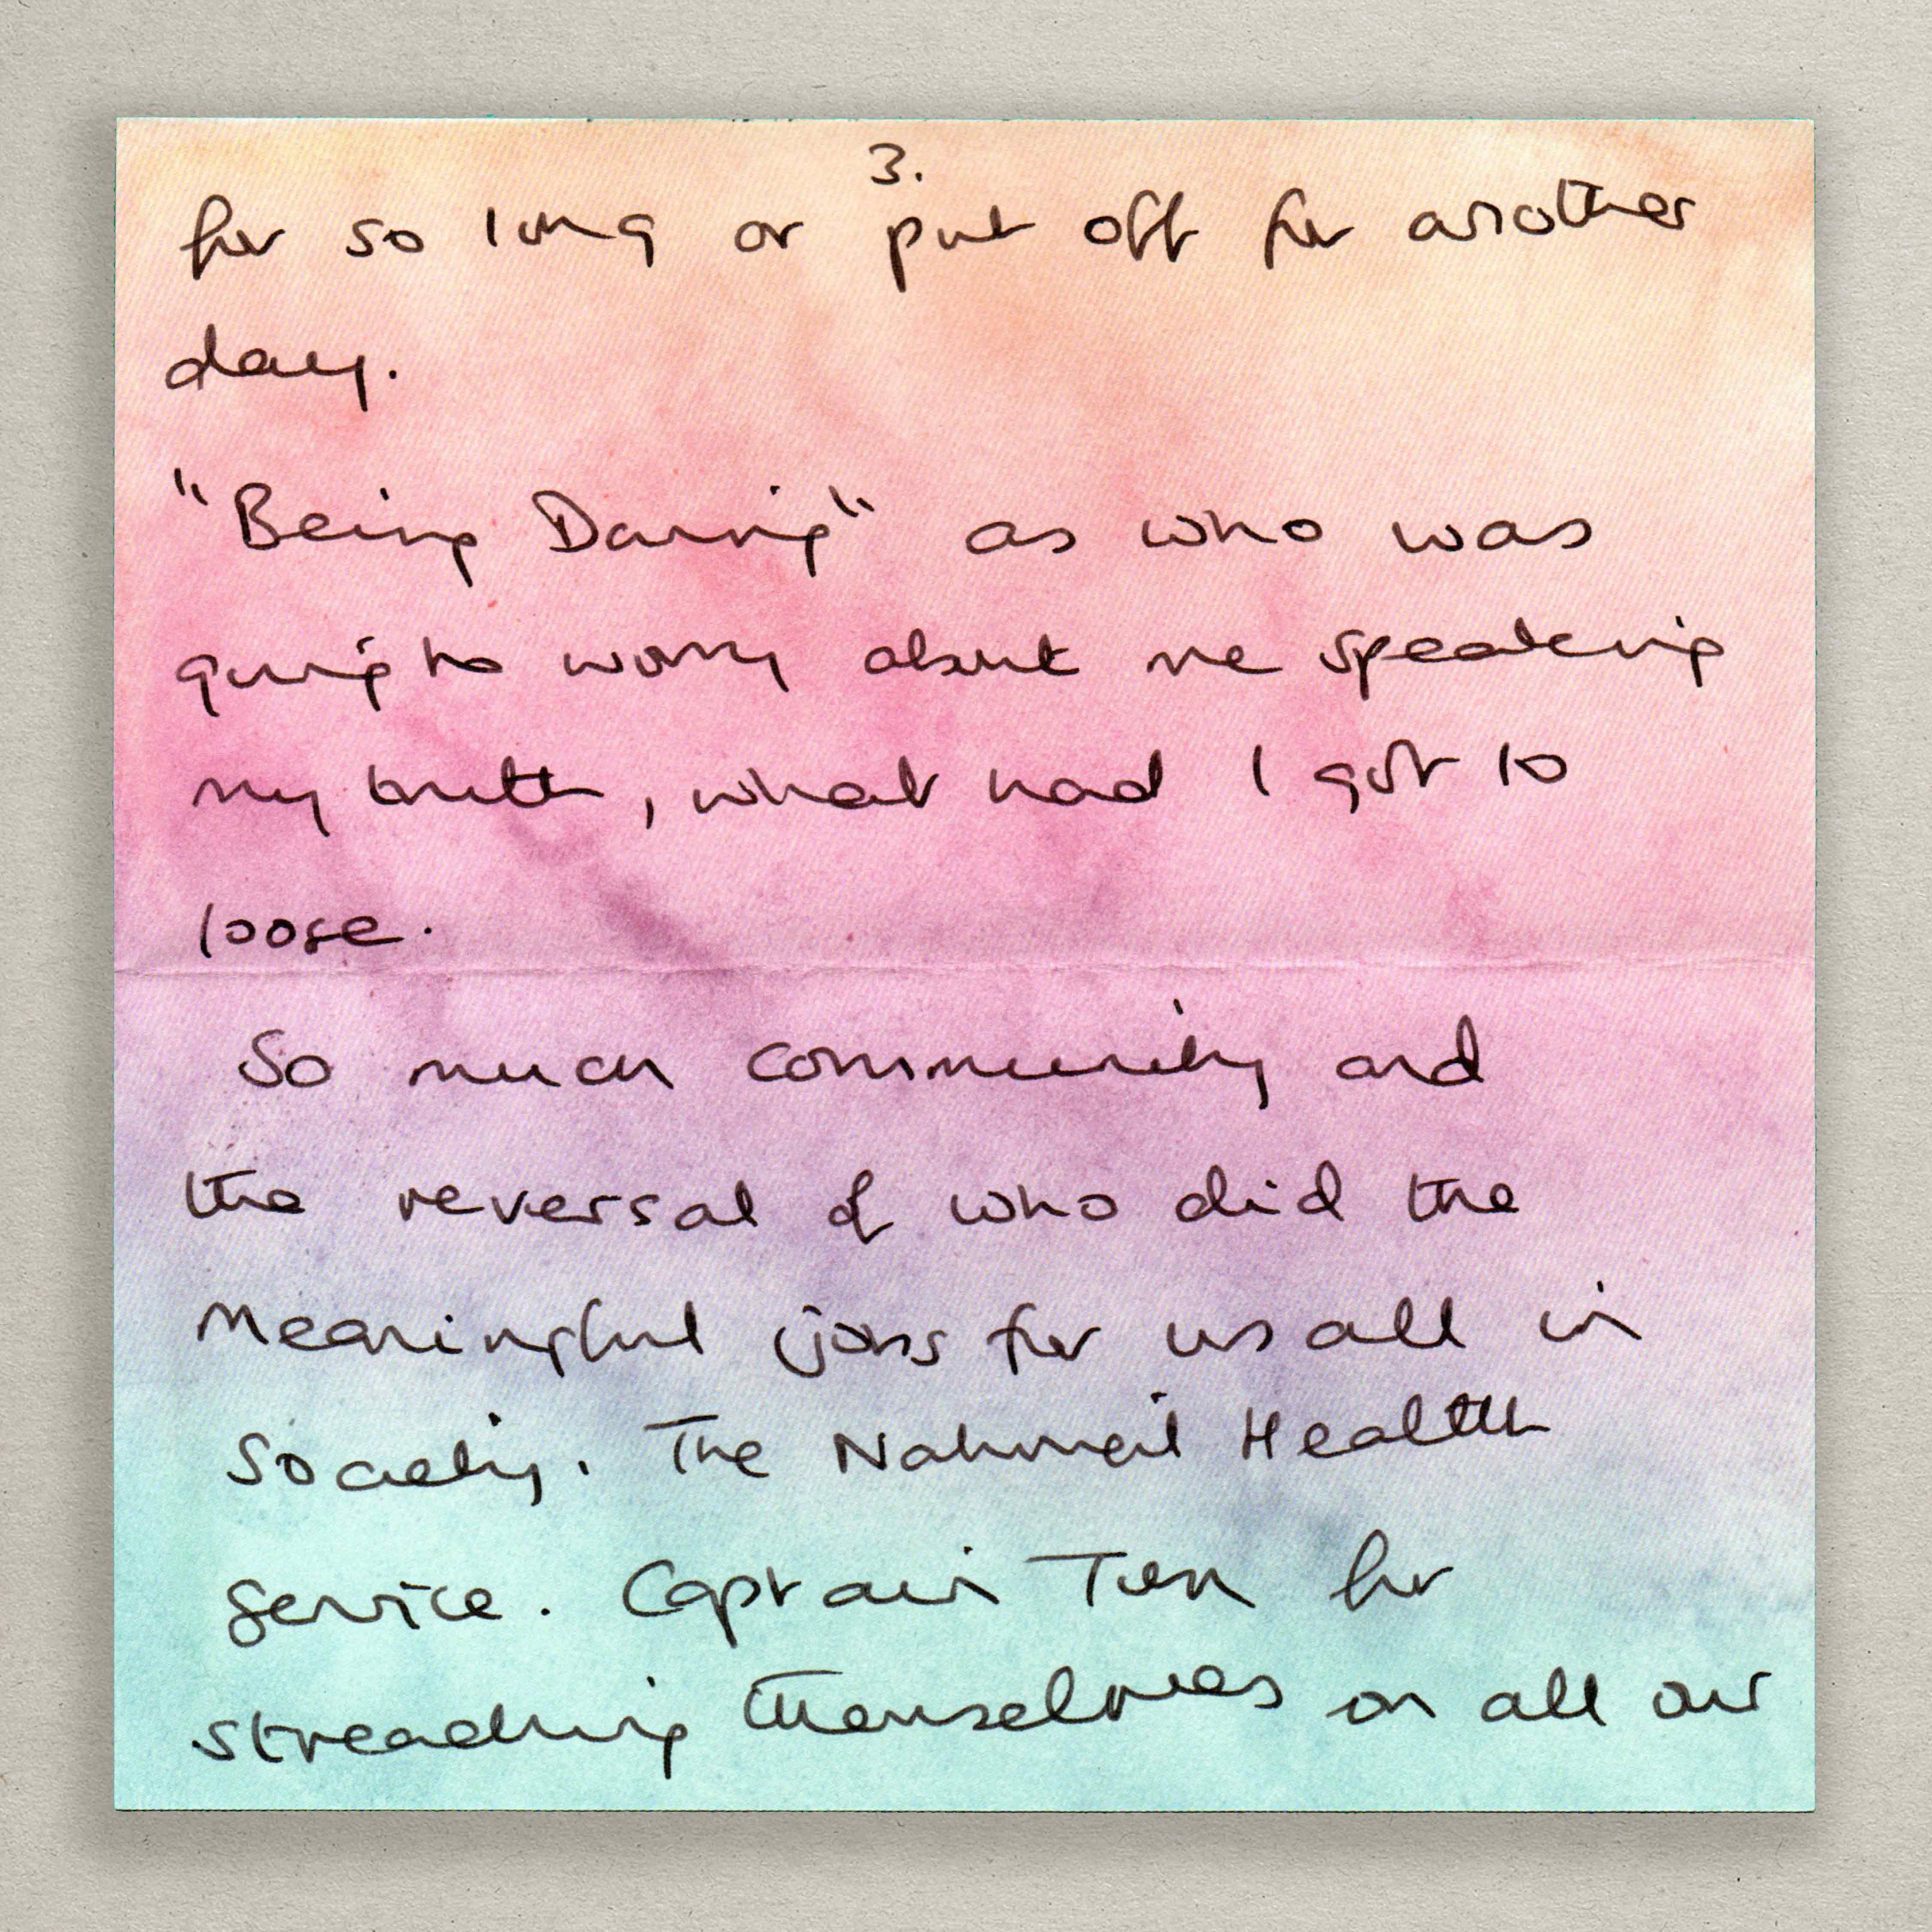 3.
for so long or put off for another
day.
"Being Daring" as who was
going to worry about me speaking
my truth, what had I got to
loose.
So much community and
the reversal of who did the
Meaningful jobs for us all in
Society. The National Health
Service. Captain Tom for
streaching themselves on all our